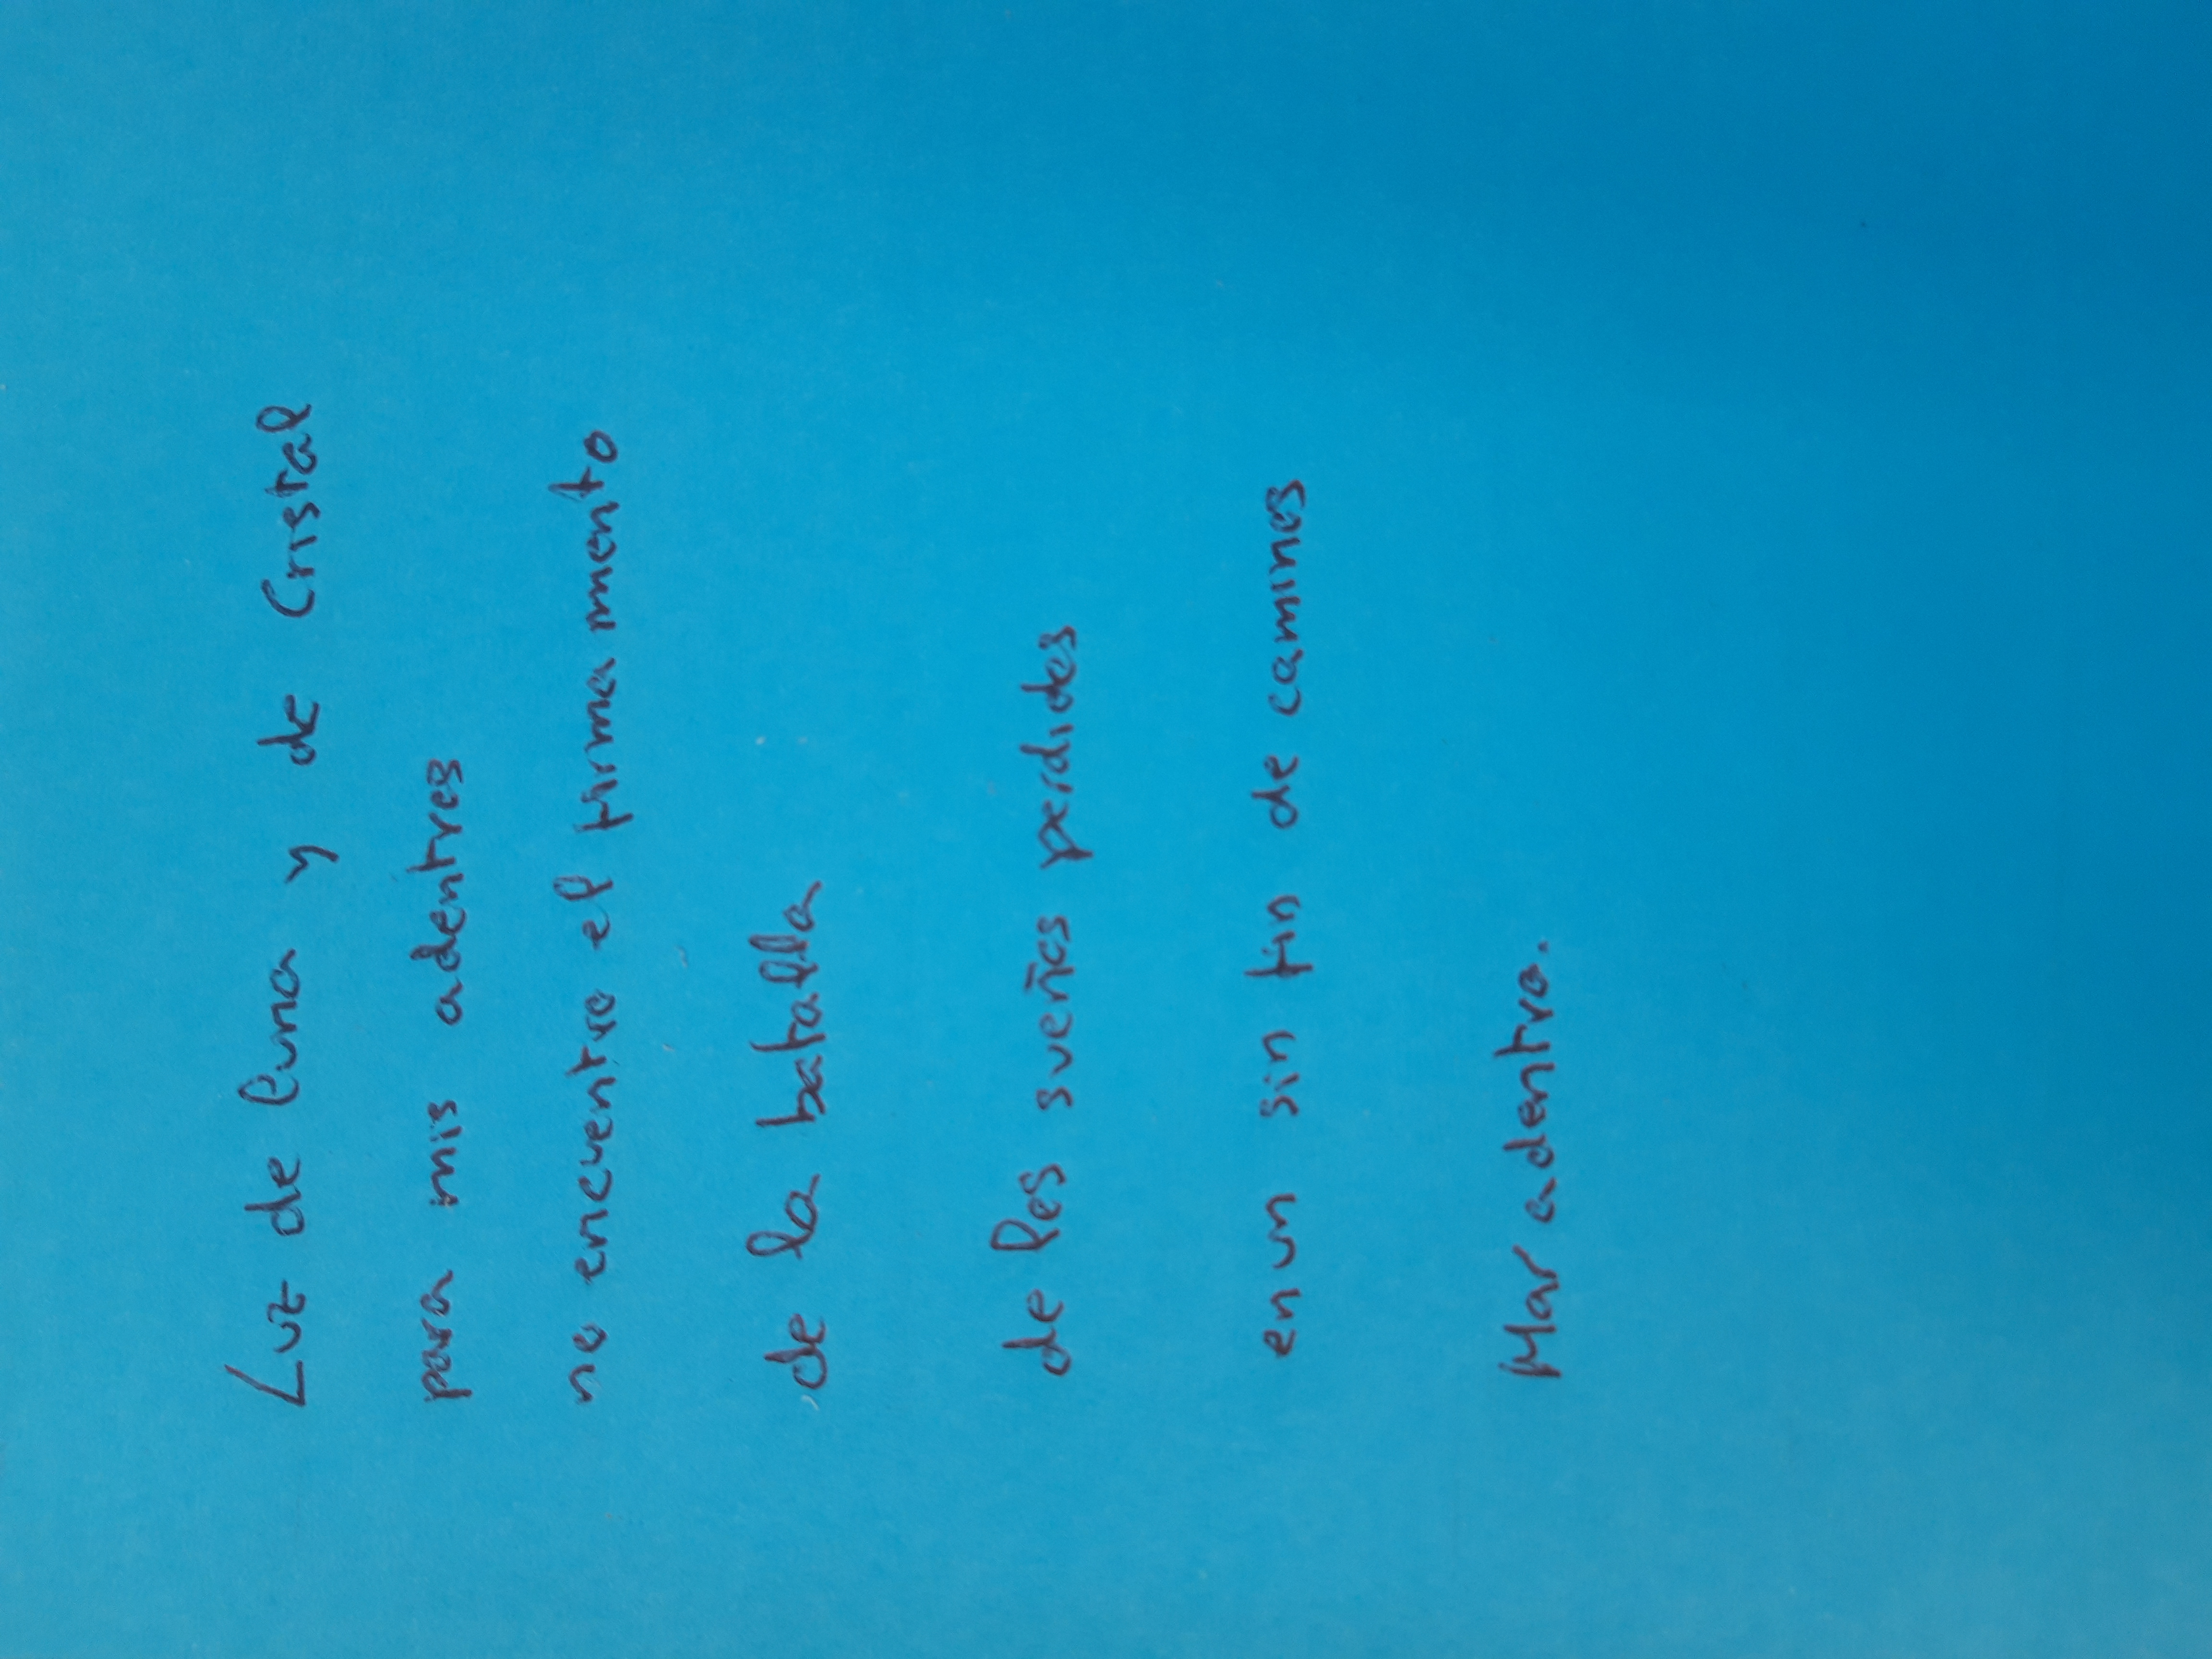 Luz de luna y de Cristal
para mis adentros
no encuentro el firmamento
de la batalla
de los sueños perdidos
en un sin fin de caminos
Mar adentro.